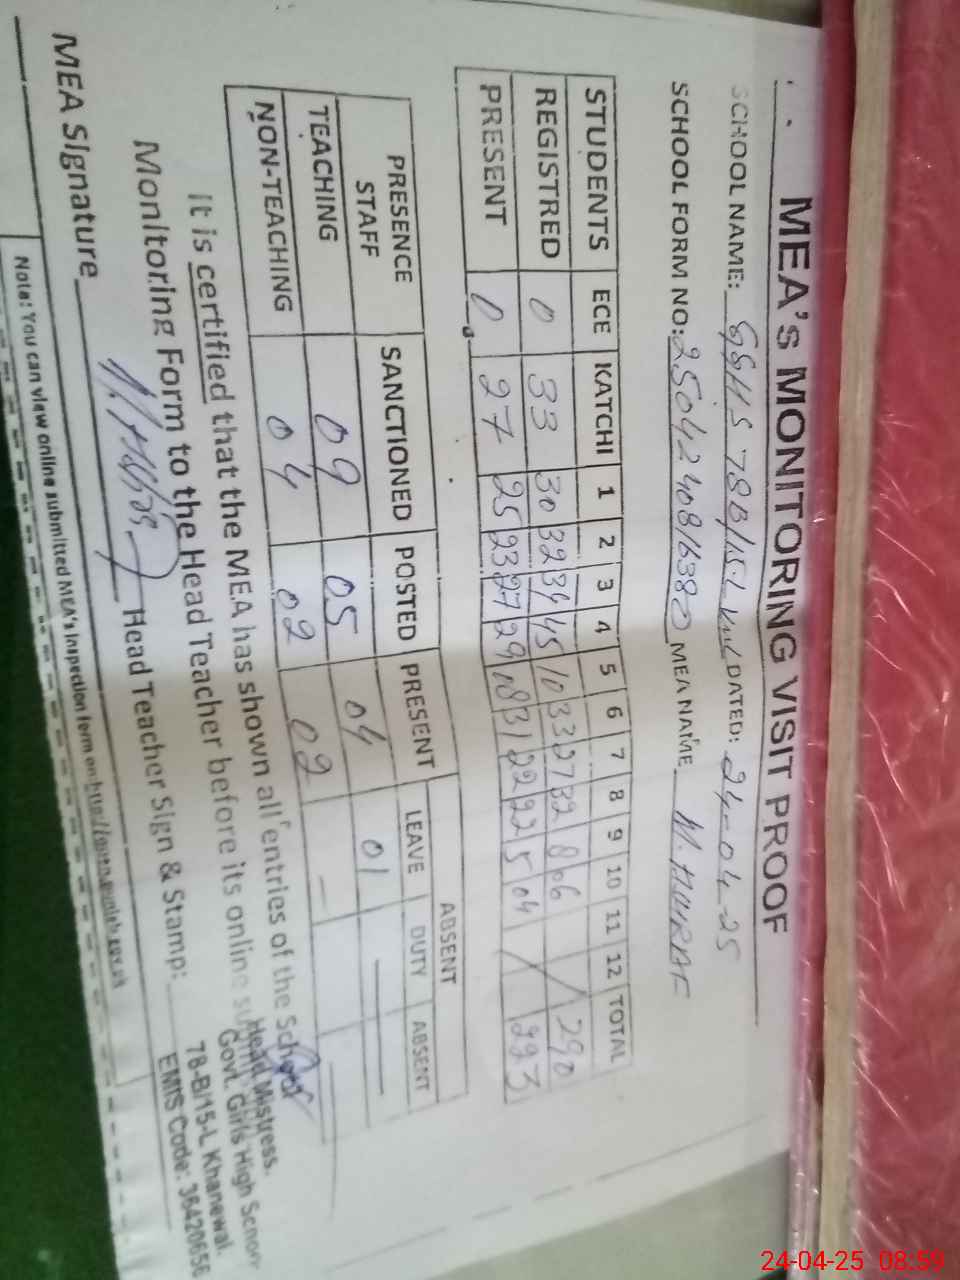 MEA's MONITORING VISIT PROOF
SCHOOL NAME: GGHS 78B/15-L DATED: 24-04-25
SCHOOL FORM NO: MEA NAME
STUDENTS ECE KATCHI 1 2 3 4 5 6 7 8 9 10 11 12 TOTAL
REGISTRED 0 33 30 32 34 45 10 33 27 32 8 06 / 290
PRESENT 0 27 25 23 27 29 08 31 22 22 5 04 / 223
PRESENCE STAFF SANCTIONED POSTED PRESENT ABSENT
LEAVE DUTY ABSENT
TEACHING 09 05 04 01 —
NON-TEACHING 04 02 02 —
It is certified that the MEA has shown all entries of the School
Monitoring Form to the Head Teacher before its online
MEA Signature Head Teacher Sign & Stamp:
Head Mistress.
Govt. Girls High
78-B/15-L Khanewal.
EMIS Code: 36420656
Note: You can view online submitted MEA's inspection form on http://open.punjab.gov.pk
24-04-25 08:59